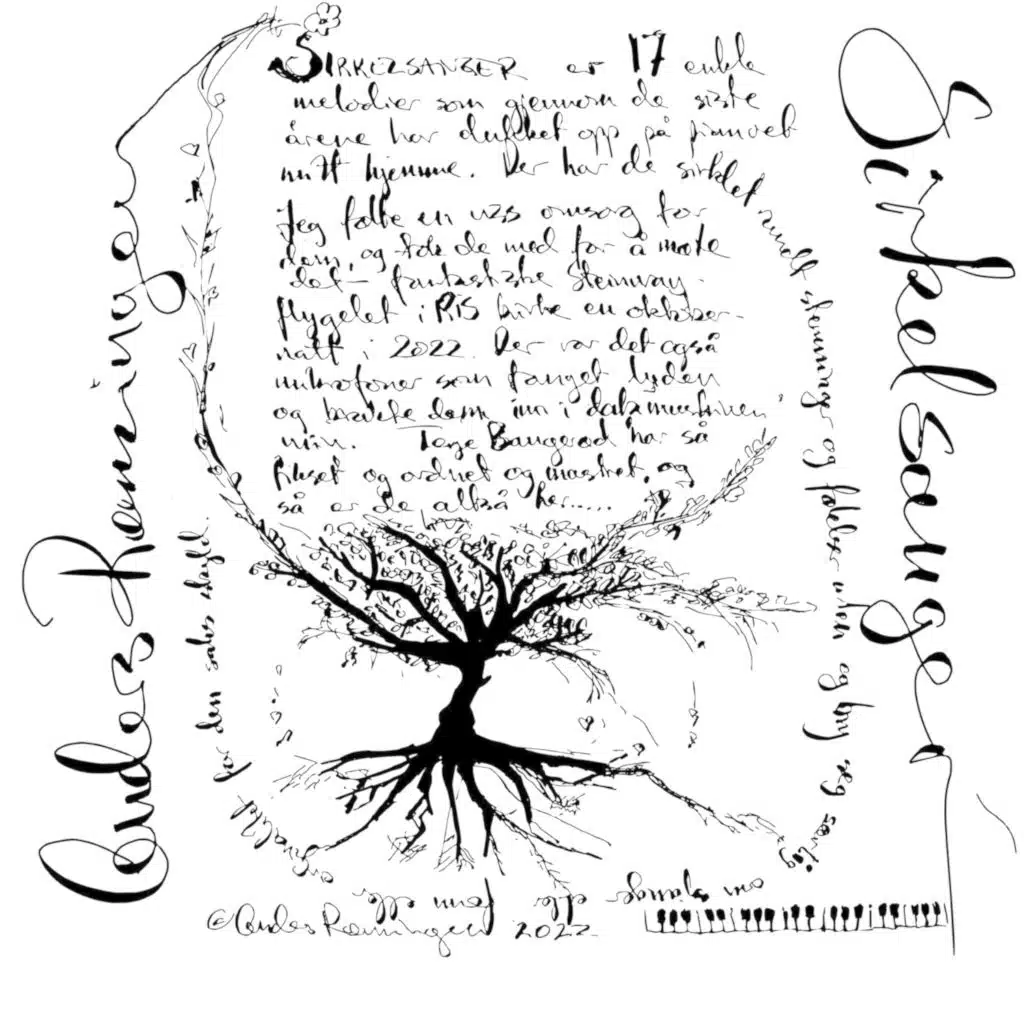 Anders Rønningen
Sirkelsanger
SIRKELSANGER er 17 enkle
melodier som gjennom de siste
årene har dukket opp på pianoet
mitt hjemme. Der har de sirklet rundt stemninger og følelser uten og bry seg særlig
om slanger eller form eller
for den saks skyld.
Jeg følte en viss omsorg for
dem, og tok de med for å møte
det fantastiske Steinway-
flygelet i RIS kirke en oktober-
natt i 2022. Der var det også
mikrofoner som fanget lyden
og brakte dem inn i datamaskinen
min. Tage Baugerød har så
fikset og ordnet og mastret, og
så er de altså her......
© Anders Rønningen 2022